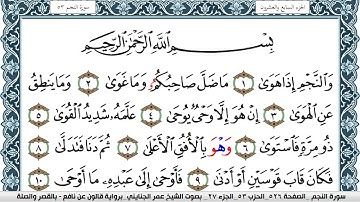 الجزء السابع والعشرون
سورة النجم ٥٣
بِسْمِ اللَّهِ الرَّحْمَٰنِ الرَّحِيمِ
وَالنَّجْمِ إِذَا هَوَىٰ ١ مَا ضَلَّ صَاحِبُكُمْ وَمَا غَوَىٰ ٢ وَمَا يَنطِقُ
عَنِ الْهَوَىٰ ٣ إِنْ هُوَ إِلَّا وَحْيٌ يُوحَىٰ ٤ عَلَّمَهُ شَدِيدُ الْقُوَىٰ ٥
ذُو مِرَّةٍ فَاسْتَوَىٰ ٦ وَهْوَ بِالْأُفُقِ الْأَعْلَىٰ ٧ ثُمَّ دَنَا فَتَدَلَّىٰ ٨
فَكَانَ قَابَ قَوْسَيْنِ أَوْ أَدْنَىٰ ٩ فَأَوْحَىٰ إِلَىٰ عَبْدِهِ مَا أَوْحَىٰ ١٠
سورة النجم الصفحة ٥٢٦ الحزب ٥٣ الجزء ٢٧ بصوت الشيخ عمر الجنايني برواية قالون عن نافع - بالقصر والصلة